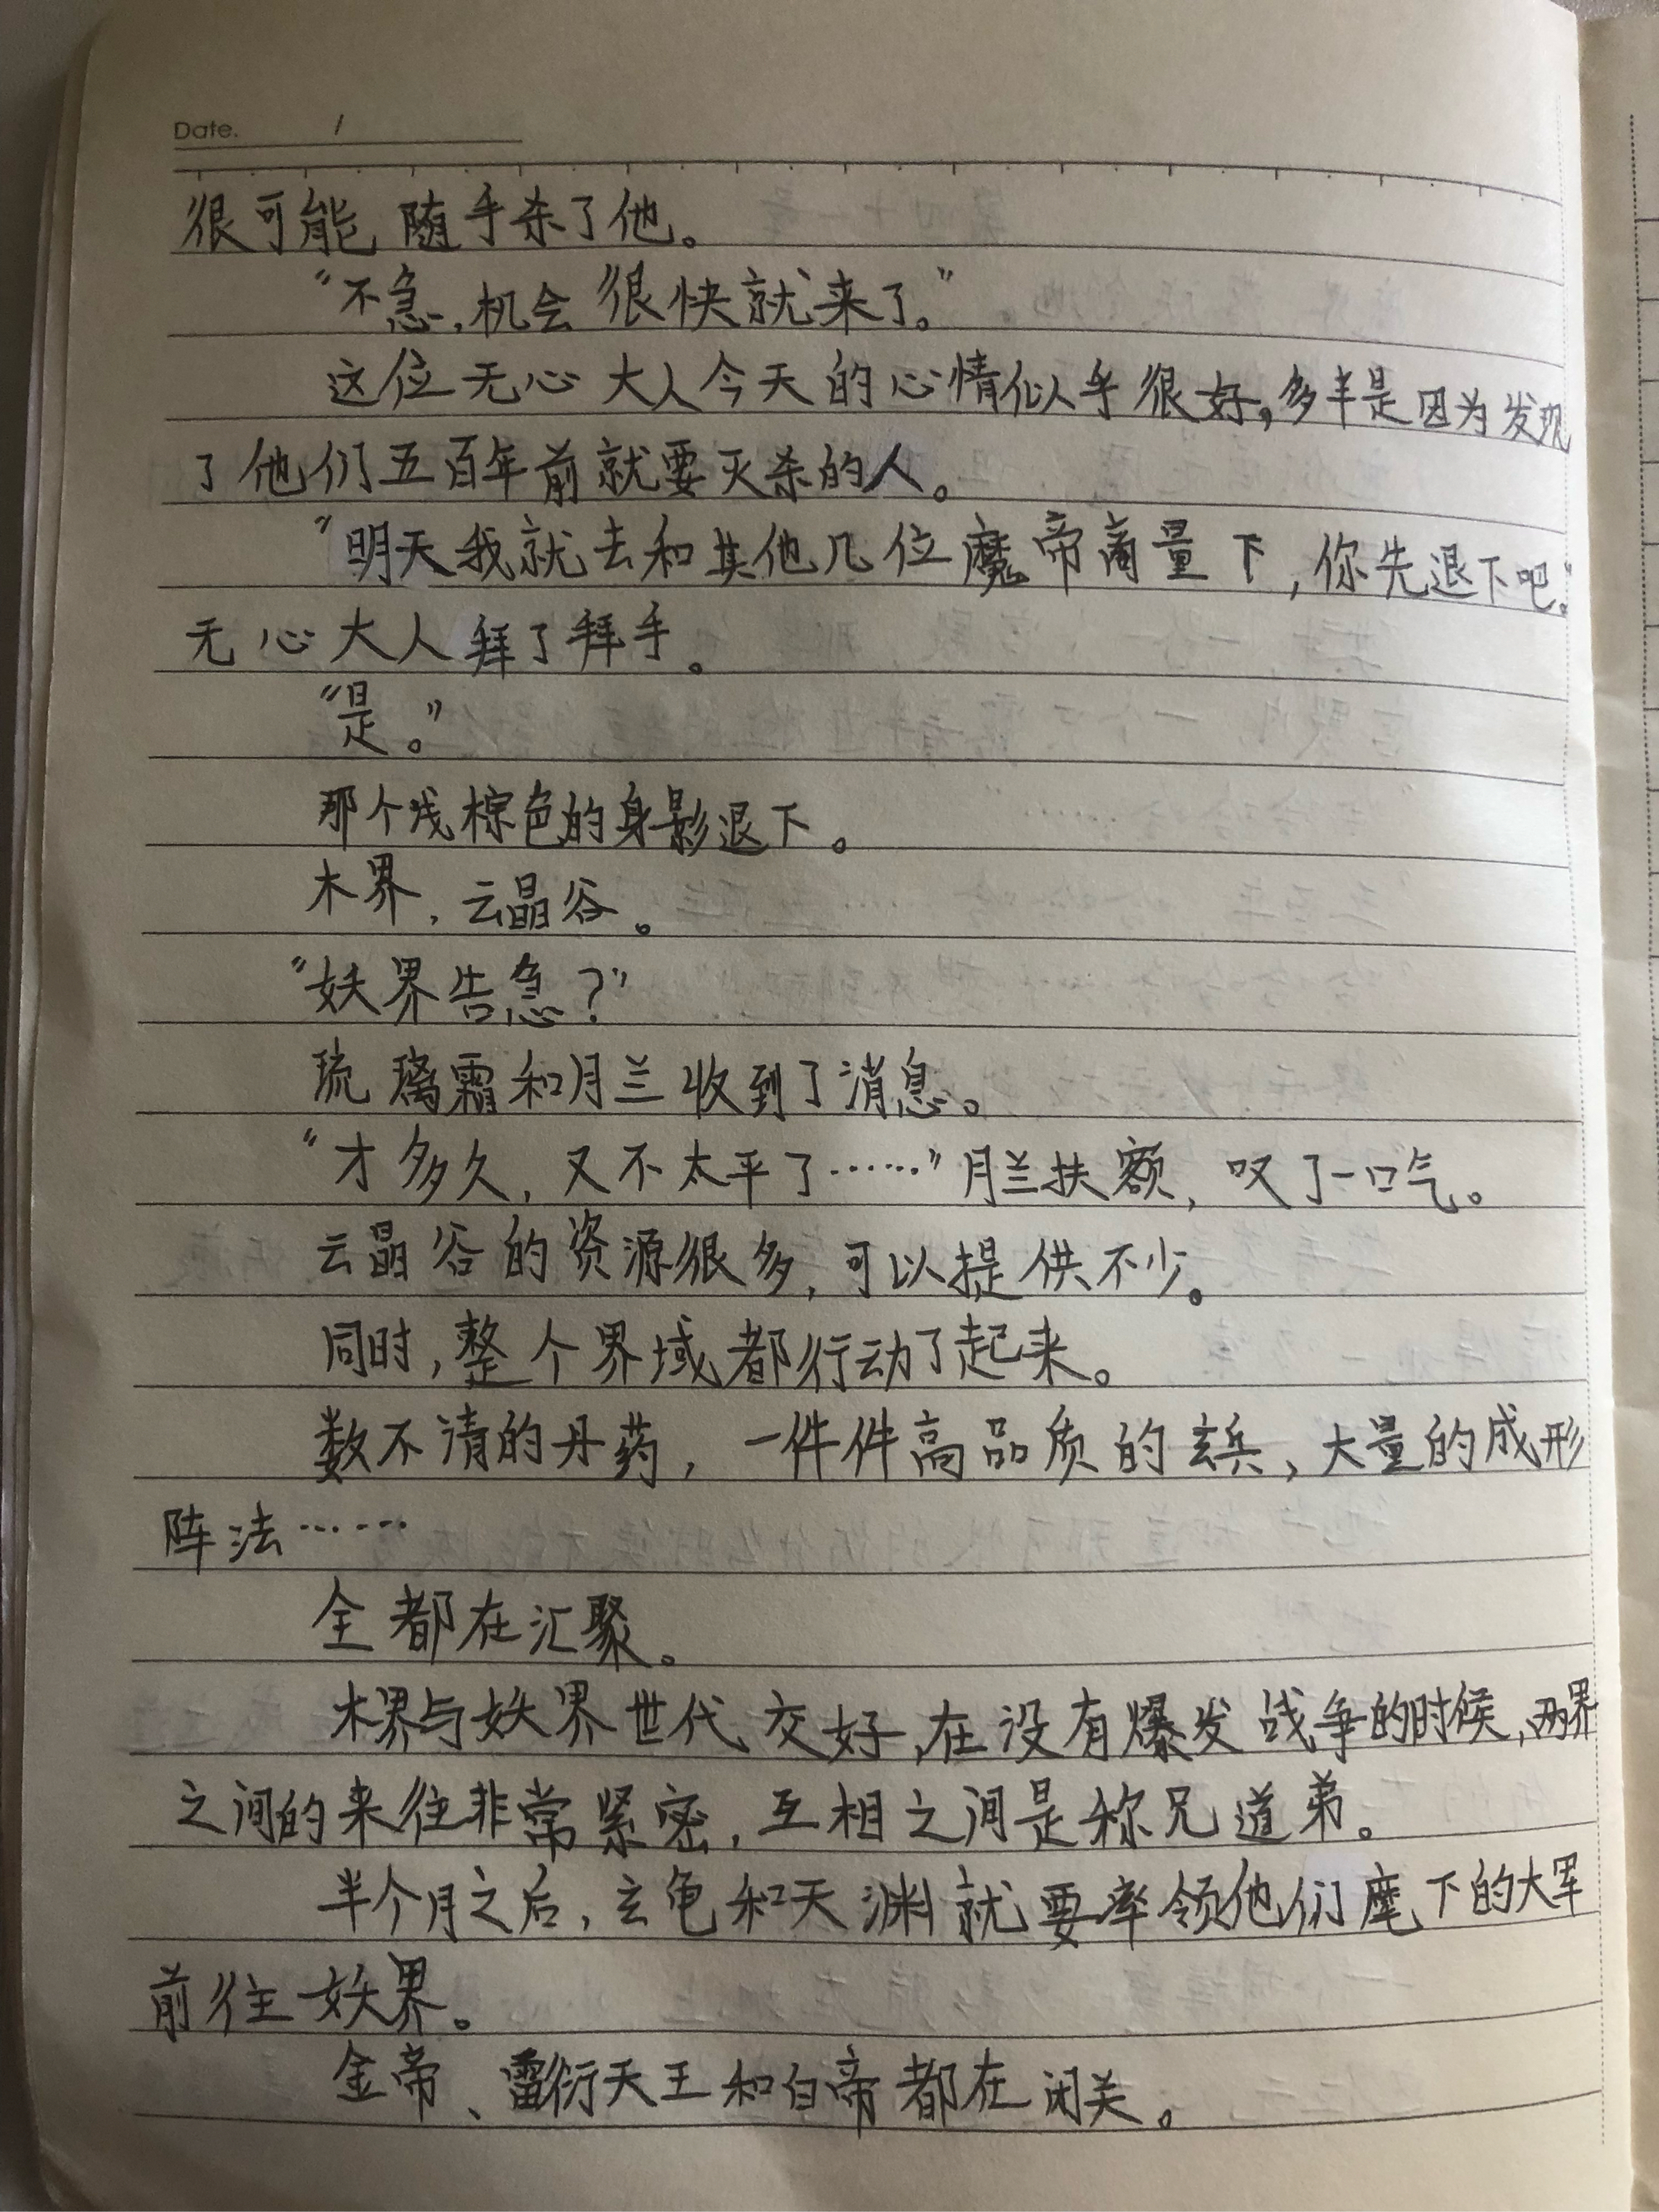 Date. /
很可能随手杀了他。
“不急，机会很快就来了。”
这位无心大人今天的心情似乎很好，多半是因为发现
了他们五百年前就要灭杀的人。
“明天我就去和其他几位魔帝商量下，你先退下吧。”
无心大人拜了拜手。
“是。”
那个浅棕色的身影退下。
木界，云晶谷。
“妖界告急？”
琉璃霜和月兰收到了消息。
“才多久，又不太平了……”月兰扶额，叹了一口气。
云晶谷的资源很多，可以提供不少。
同时，整个界域都行动了起来。
数不清的丹药，一件件高品质的玄兵，大量的成形
阵法……
全都在汇聚。
木界与妖界世代交好，在没有爆发战争的时候，两界
之间的来往非常紧密，互相之间是称兄道弟。
半个月之后，玄龟和天渊就要率领他们麾下的大军
前往妖界。
金帝、雷衍天王和白帝都在闭关。